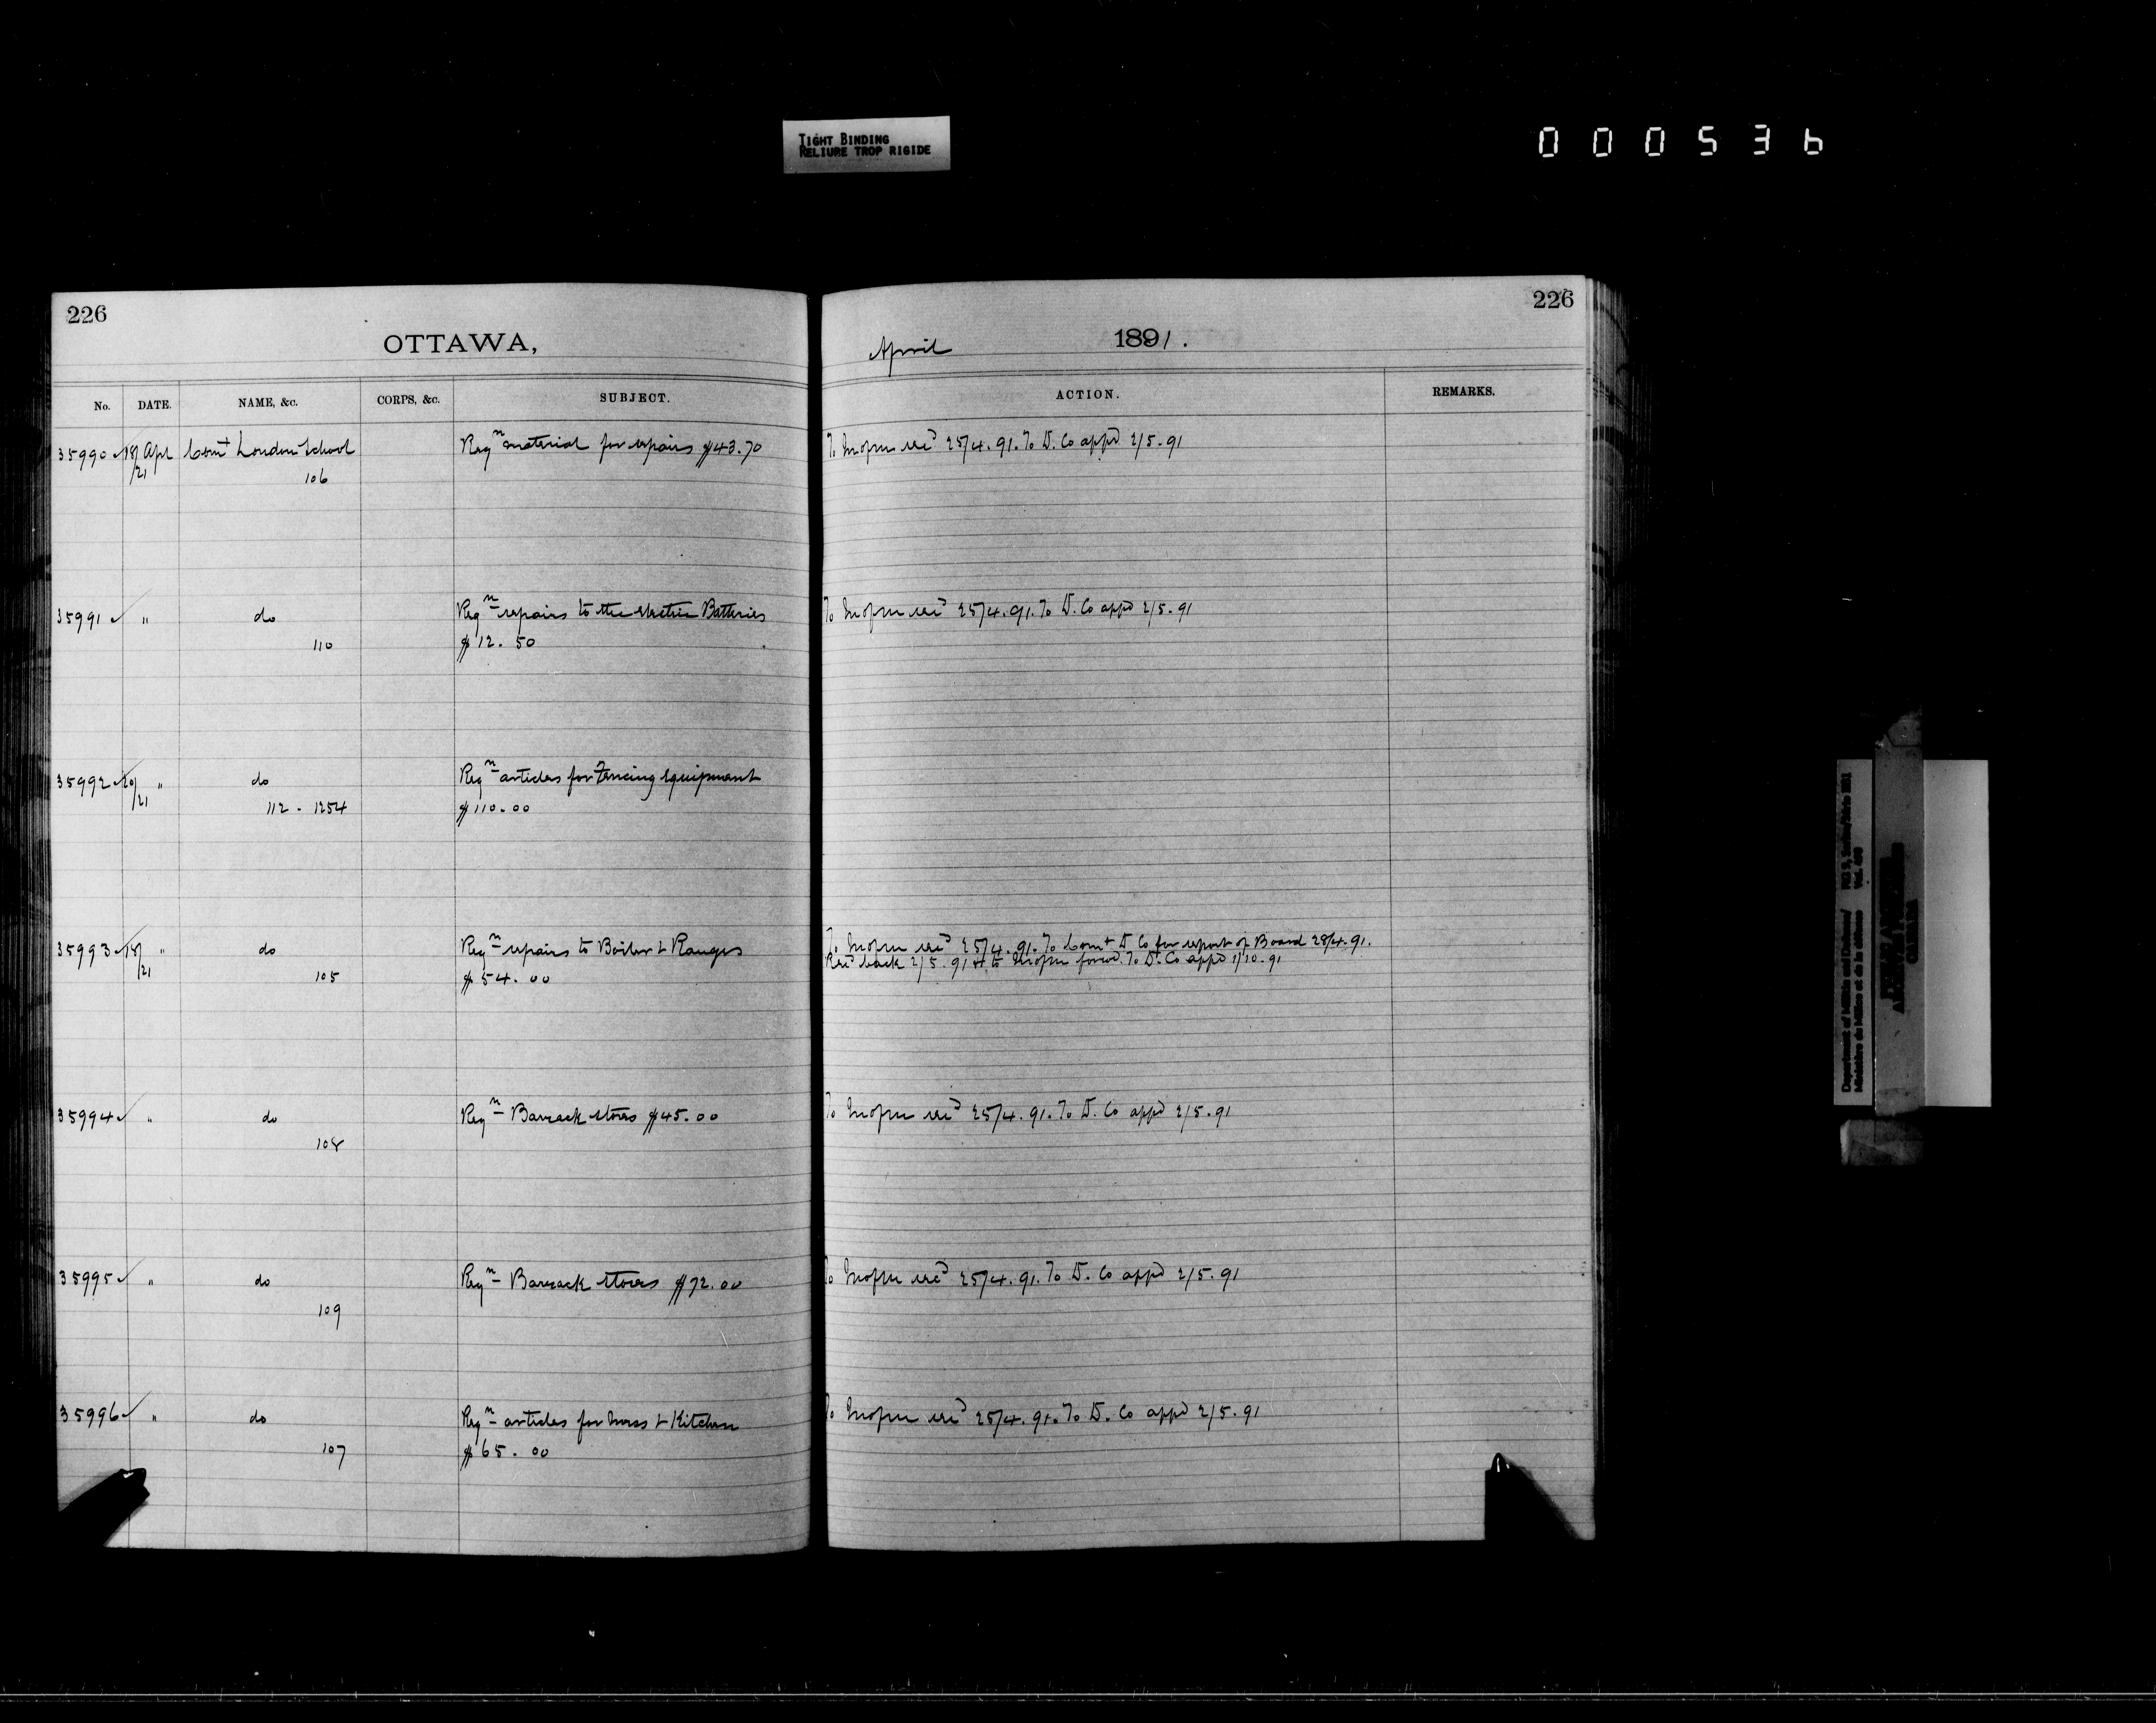 TIGHT BINDING
RELIURE TROP RIGIDE
000536
226
OTTAWA,
April 1891.
226
No. DATE. NAME, &c. CORPS, &c. SUBJECT. ACTION. REMARKS.
35990 18/21 Apl Comt London School Reqn material for repairs $43.70 To recd 25/4.91. To D. Co appd 2/5.91
106
35991 " do Reqn repairs to the electric Batteries To recd 25/4.91. To D. Co appd 2/5.91
110 $12.50
35992 20/21 " do Reqn articles for Fencing Equipment
112 - 1254 $110.00
35993 18/21 " do Reqn repairs to Boiler & Ranges To recd 25/4.91. To Comt D Co for report of Board 28/4.91.
Recd back 2/5.91 & to forwd. To D. Co appd 1/10.91
105 $54.00
35994 " do Reqn Barrack stores $45.00 To recd 25/4.91. To D. Co appd 2/5.91
108
35995 " do Reqn Barrack stores $72.00 To recd 25/4.91. To D. Co appd 2/5.91
109
35996 " do Reqn articles for Mess & Kitchen To recd 25/4.91. To D. Co appd 2/5.91
107 $65.00
Department of Militia and Defence/
Ministère de la Milice et de la défense